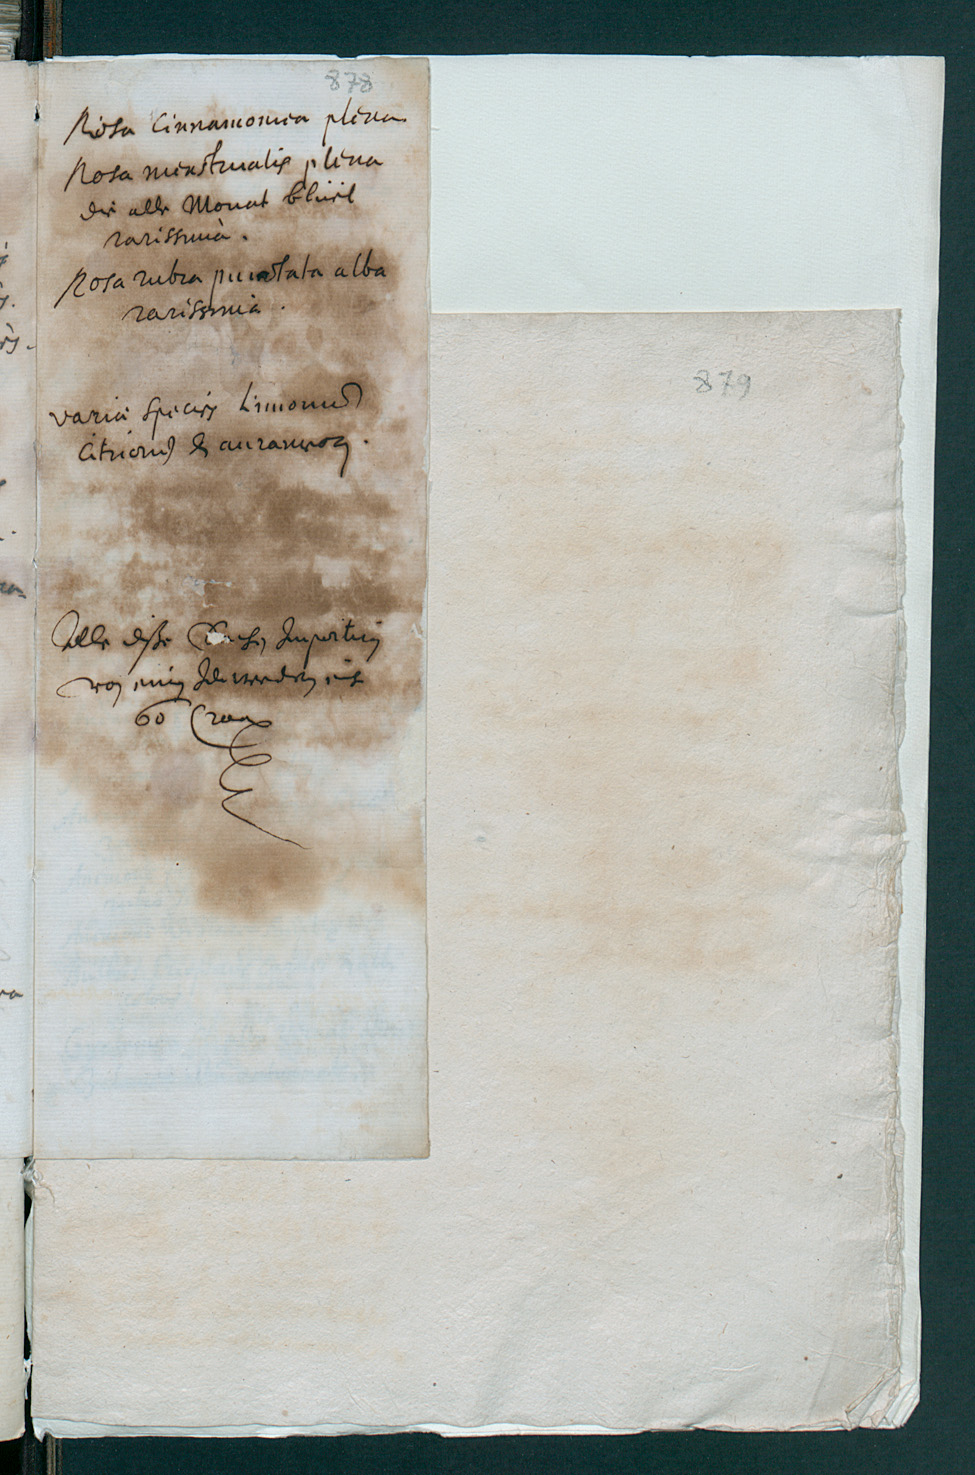 878
Rosa Cinnamomea plena
Rosa menstrualis plena
die alle Monat blüet
rarissima.
Rosa rubra punctata alba
rarissima.
variæ species Limonum
Citriorum & aurantiorum.
Alle dise
von einem
60 Cron
879